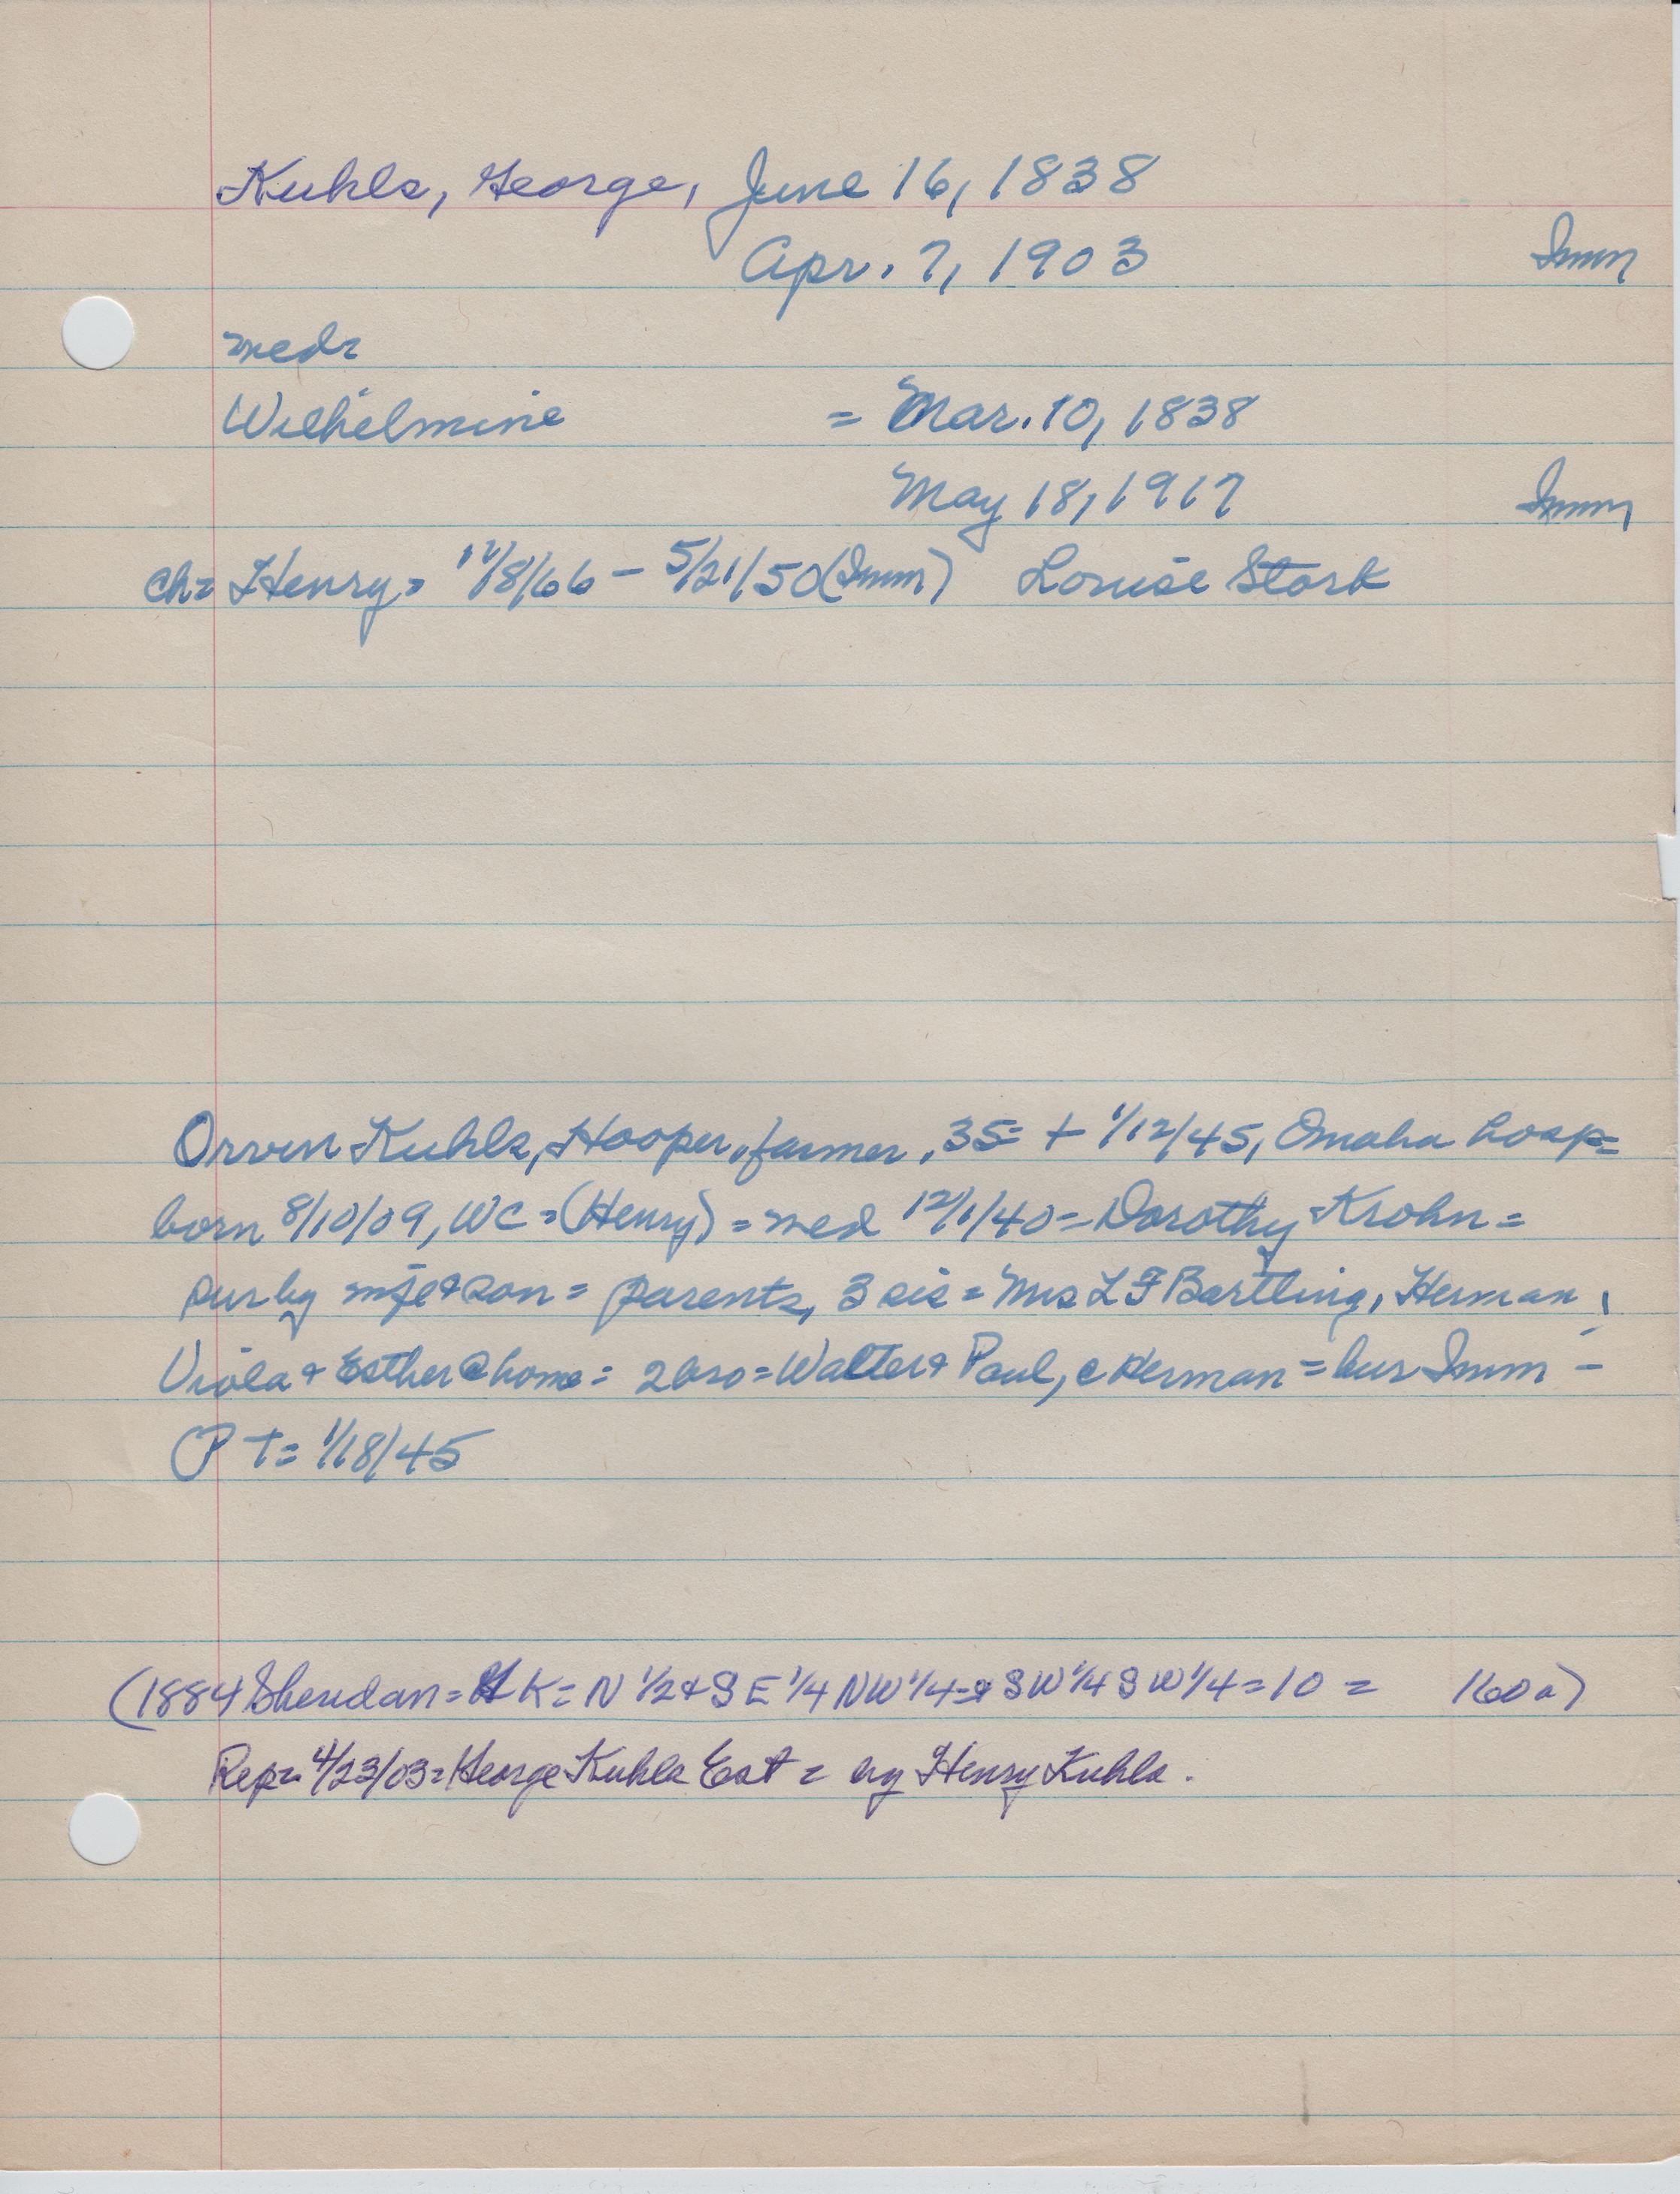 Kuhls, George, June 16, 1838
Apr. 7, 1903 Imm
med=
Wilhelmine = Mar. 10, 1838
May 18, 1917 Imm
ch= Henry= 12/8/66 - 5/21/50 (Imm) Louise Stork
Orven Kuhls, Hooper, farmer, 35= + 1/12/45, Omaha hosp=
born 8/10/09, WC = (Henry) = med 12/1/40 = Dorothy Krohn =
sur by wife & son = parents, 3 sis = Mrs L F Bartling, Herman,
Viola & Esther @ home = 2 bro = Walter & Paul, c Herman = bur Imm -
PT = 1/18/45
(1884 Sheridan = K = N 1/2 & SE 1/4 NW 1/4 = & SW 1/4 SW 1/4 = 10 = 160 a)
Rep= 4/23/03 = George Kuhls Est = by Henry Kuhls.